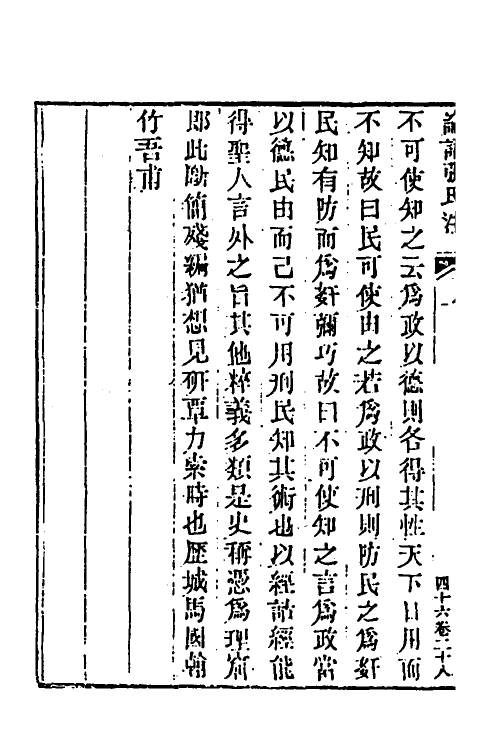 論語張氏注
四十六卷二十八
不可使知之云爲政以德則各得其性天下日用而
不知故曰民可使由之若爲政以刑則防民之爲奸
民知有防而爲奸彌巧故曰不可使知之言爲政當
以德民由而已不可用刑民知其術也以經詁經能
得聖人言外之旨其他粹義多類是史稱憑爲理窟
即此斷簡殘編猶想見研覃力索時也歷城馬國翰
竹吾甫